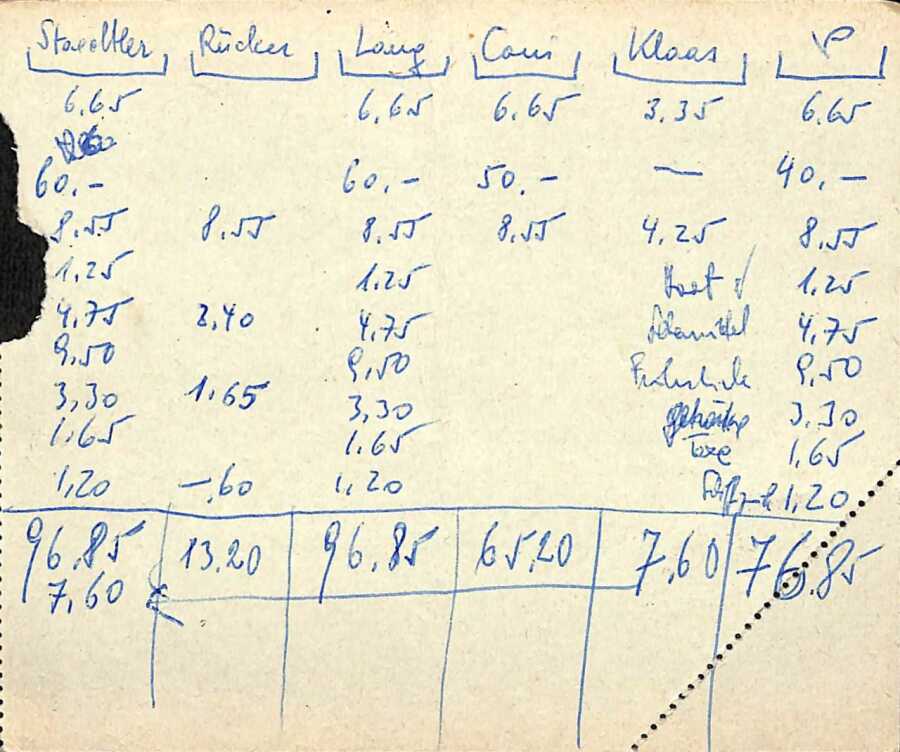 Staedtler Rücker Lang Conis Klaas P
6,65 6,65 6,65 3,35 6,65
60,- 60,- 50,- — 40,-
8,55 8,55 8,55 8,55 4,25 8,55
1,25 1,25 1,25
4,75 2,40 4,75 4,75
9,50 9,50 9,50
3,30 1,65 3,30 3,30
1,65 1,65 Taxe 1,65
1,20 -,60 1,20 1,20
96,85 13,20 96,85 65,20 7,60 76,85
7,60